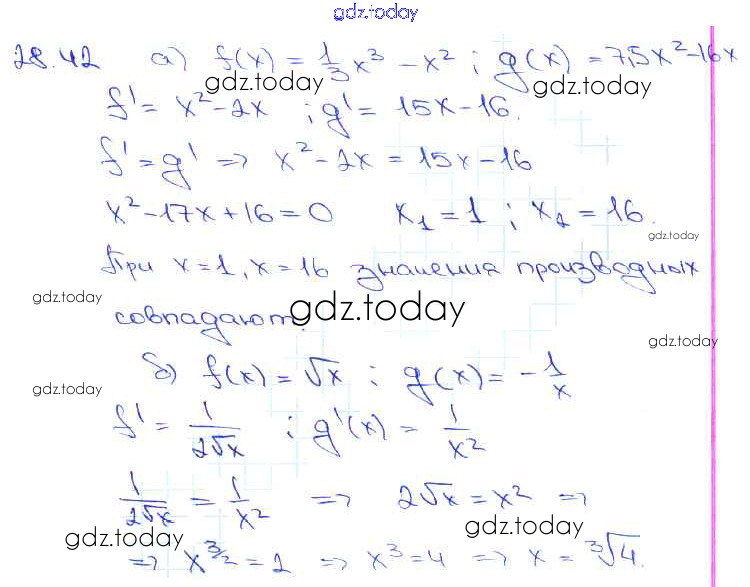 gdz.today
28.42 а) f(x) = 1/3 x³ - x² ; g(x) = 7,5x² - 16x
gdz.today gdz.today
f' = x² - 2x ; g' = 15x - 16.
f' = g' => x² - 2x = 15x - 16
x² - 17x + 16 = 0 x₁ = 1 ; x₂ = 16.
gdz.today
При x = 1, x = 16 значения производных
gdz.today gdz.today
совпадают.
gdz.today
б) f(x) = √x ; g(x) = - 1/x
gdz.today
f' = 1/(2√x) ; g'(x) = 1/x²
1/(2√x) = 1/x² => 2√x = x² =>
gdz.today gdz.today
=> x^(3/2) = 2 => x³ = 4 => x = ³√4.